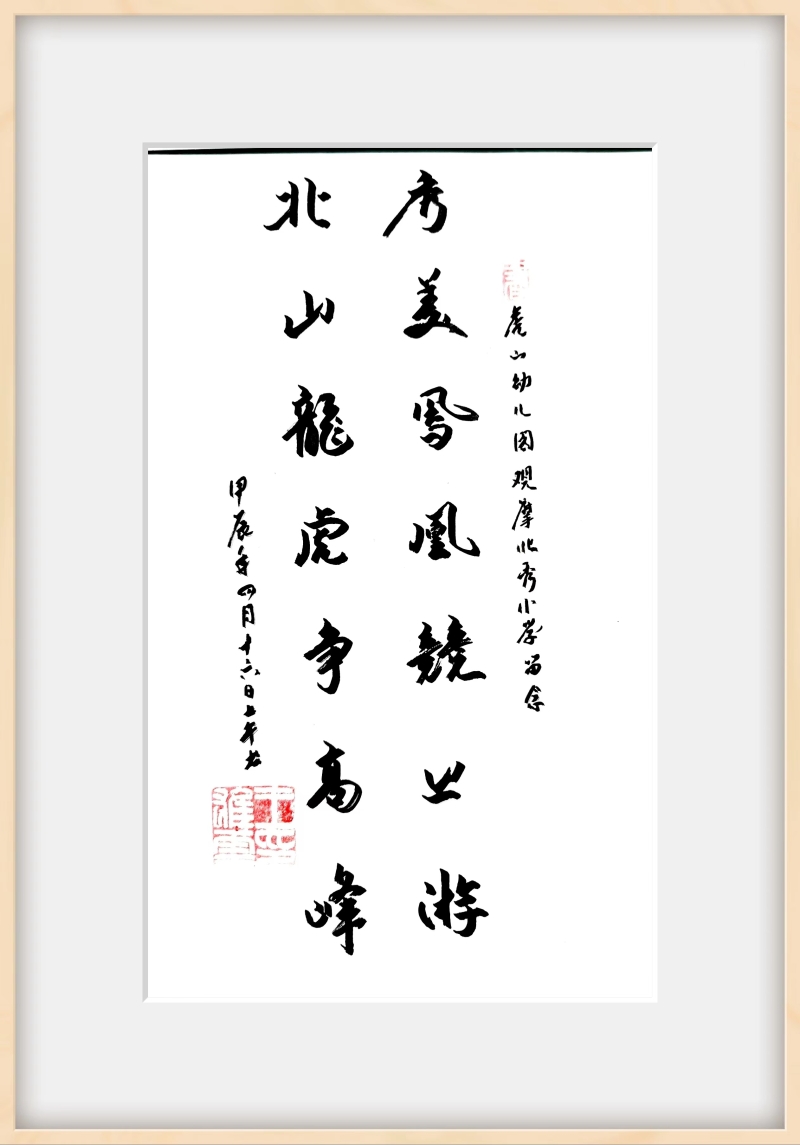 虎山幼儿园观摩北秀小学留念
秀美鳳凰競上游
北山龍虎争高峰
甲辰年四月十六日